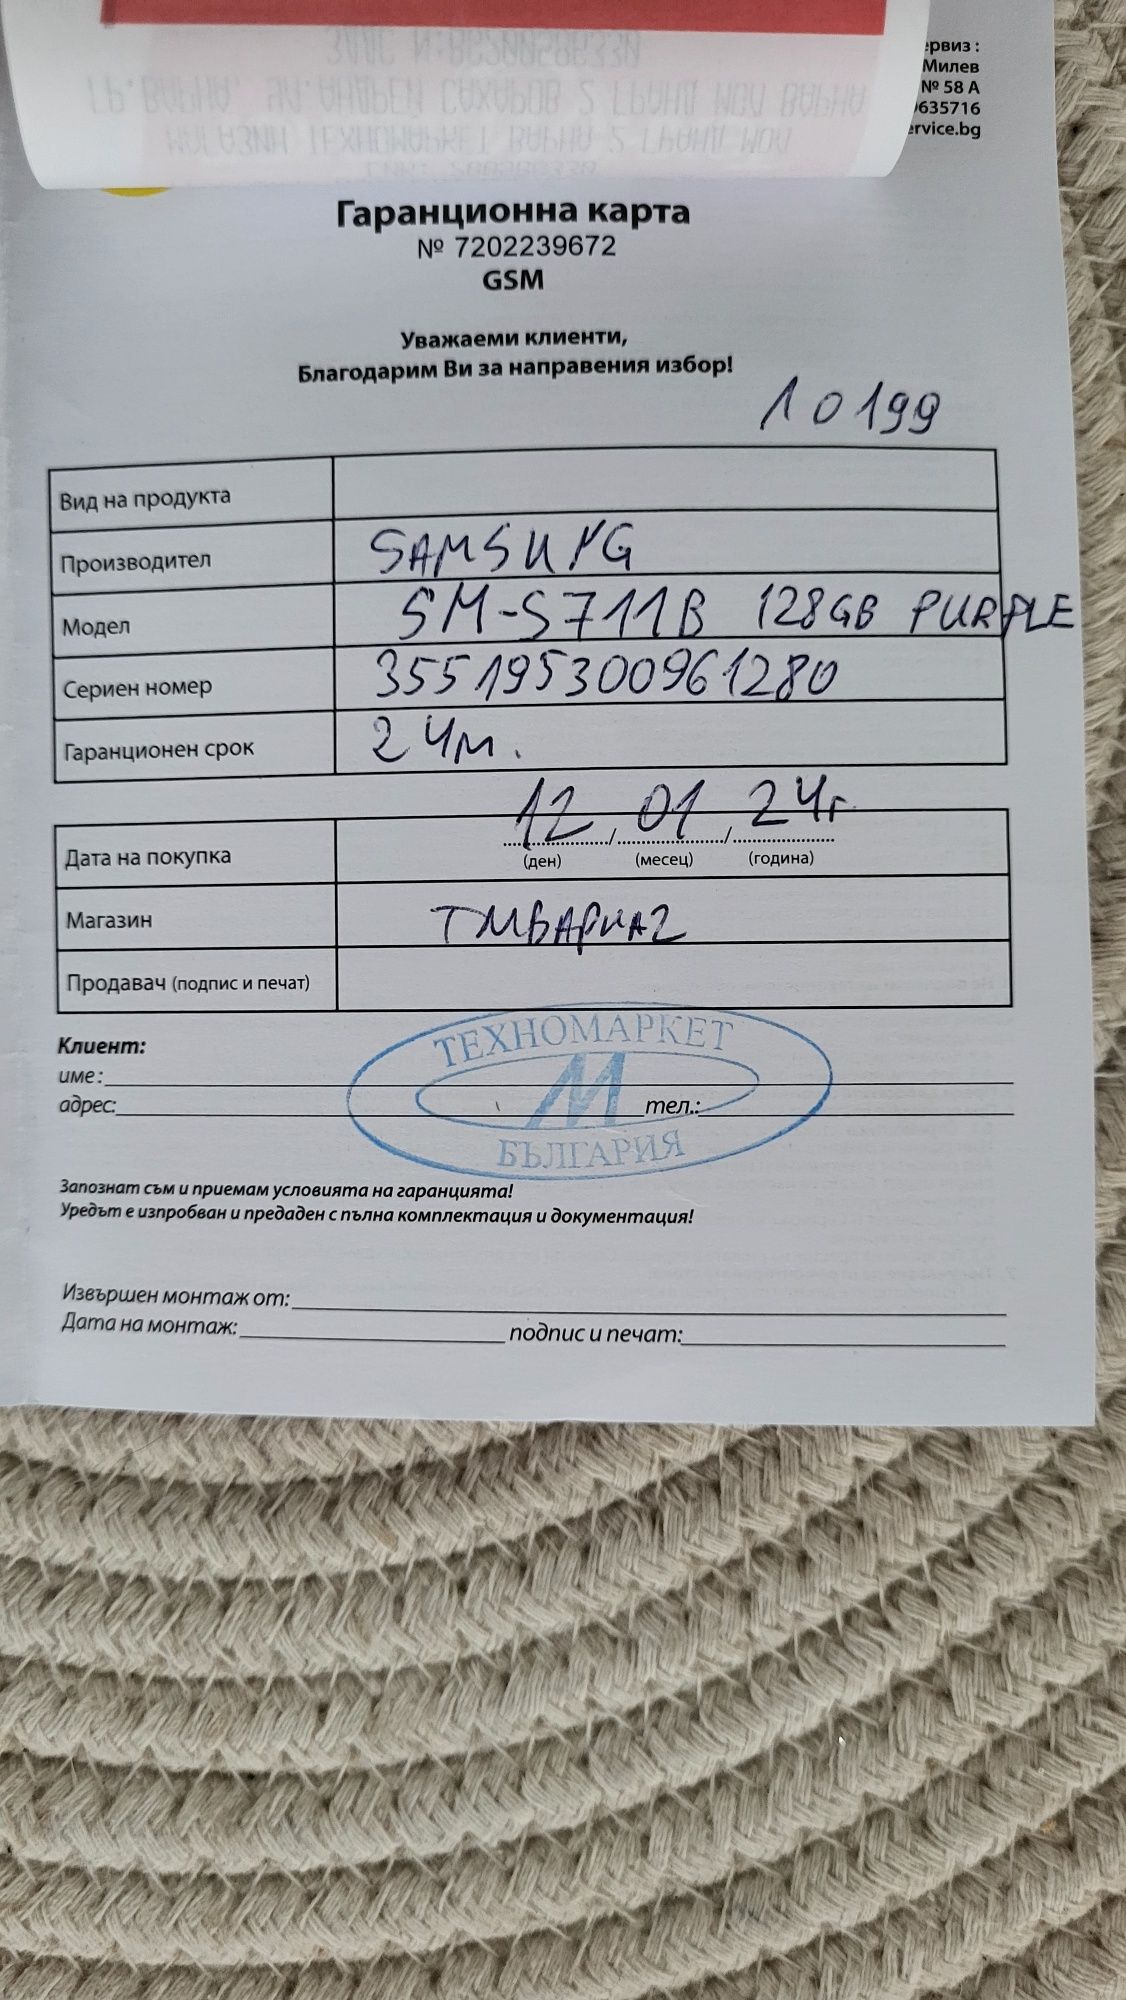 ервиз :
Милев
№ 58 А
635716
ervice.bg
Гаранционна карта
№ 7202239672
GSM
Уважаеми клиенти,
Благодарим Ви за направения избор!
10199
Вид на продукта
Производител SAMSUNG
Модел SM-S711B 128GB PURPLE
Сериен номер 355195300961280
Гаранционен срок 24м.
Дата на покупка 12 / 01 / 24г
(ден) (месец) (година)
Магазин ТМВАРНА2
Продавач (подпис и печат)
ТЕХНОМАРКЕТ
М
БЪЛГАРИЯ
Клиент:
име:
адрес: тел.:
Запознат съм и приемам условията на гаранцията!
Уредът е изпробван и предаден с пълна комплектация и документация!
Извършен монтаж от:
Дата на монтаж: подпис и печат: